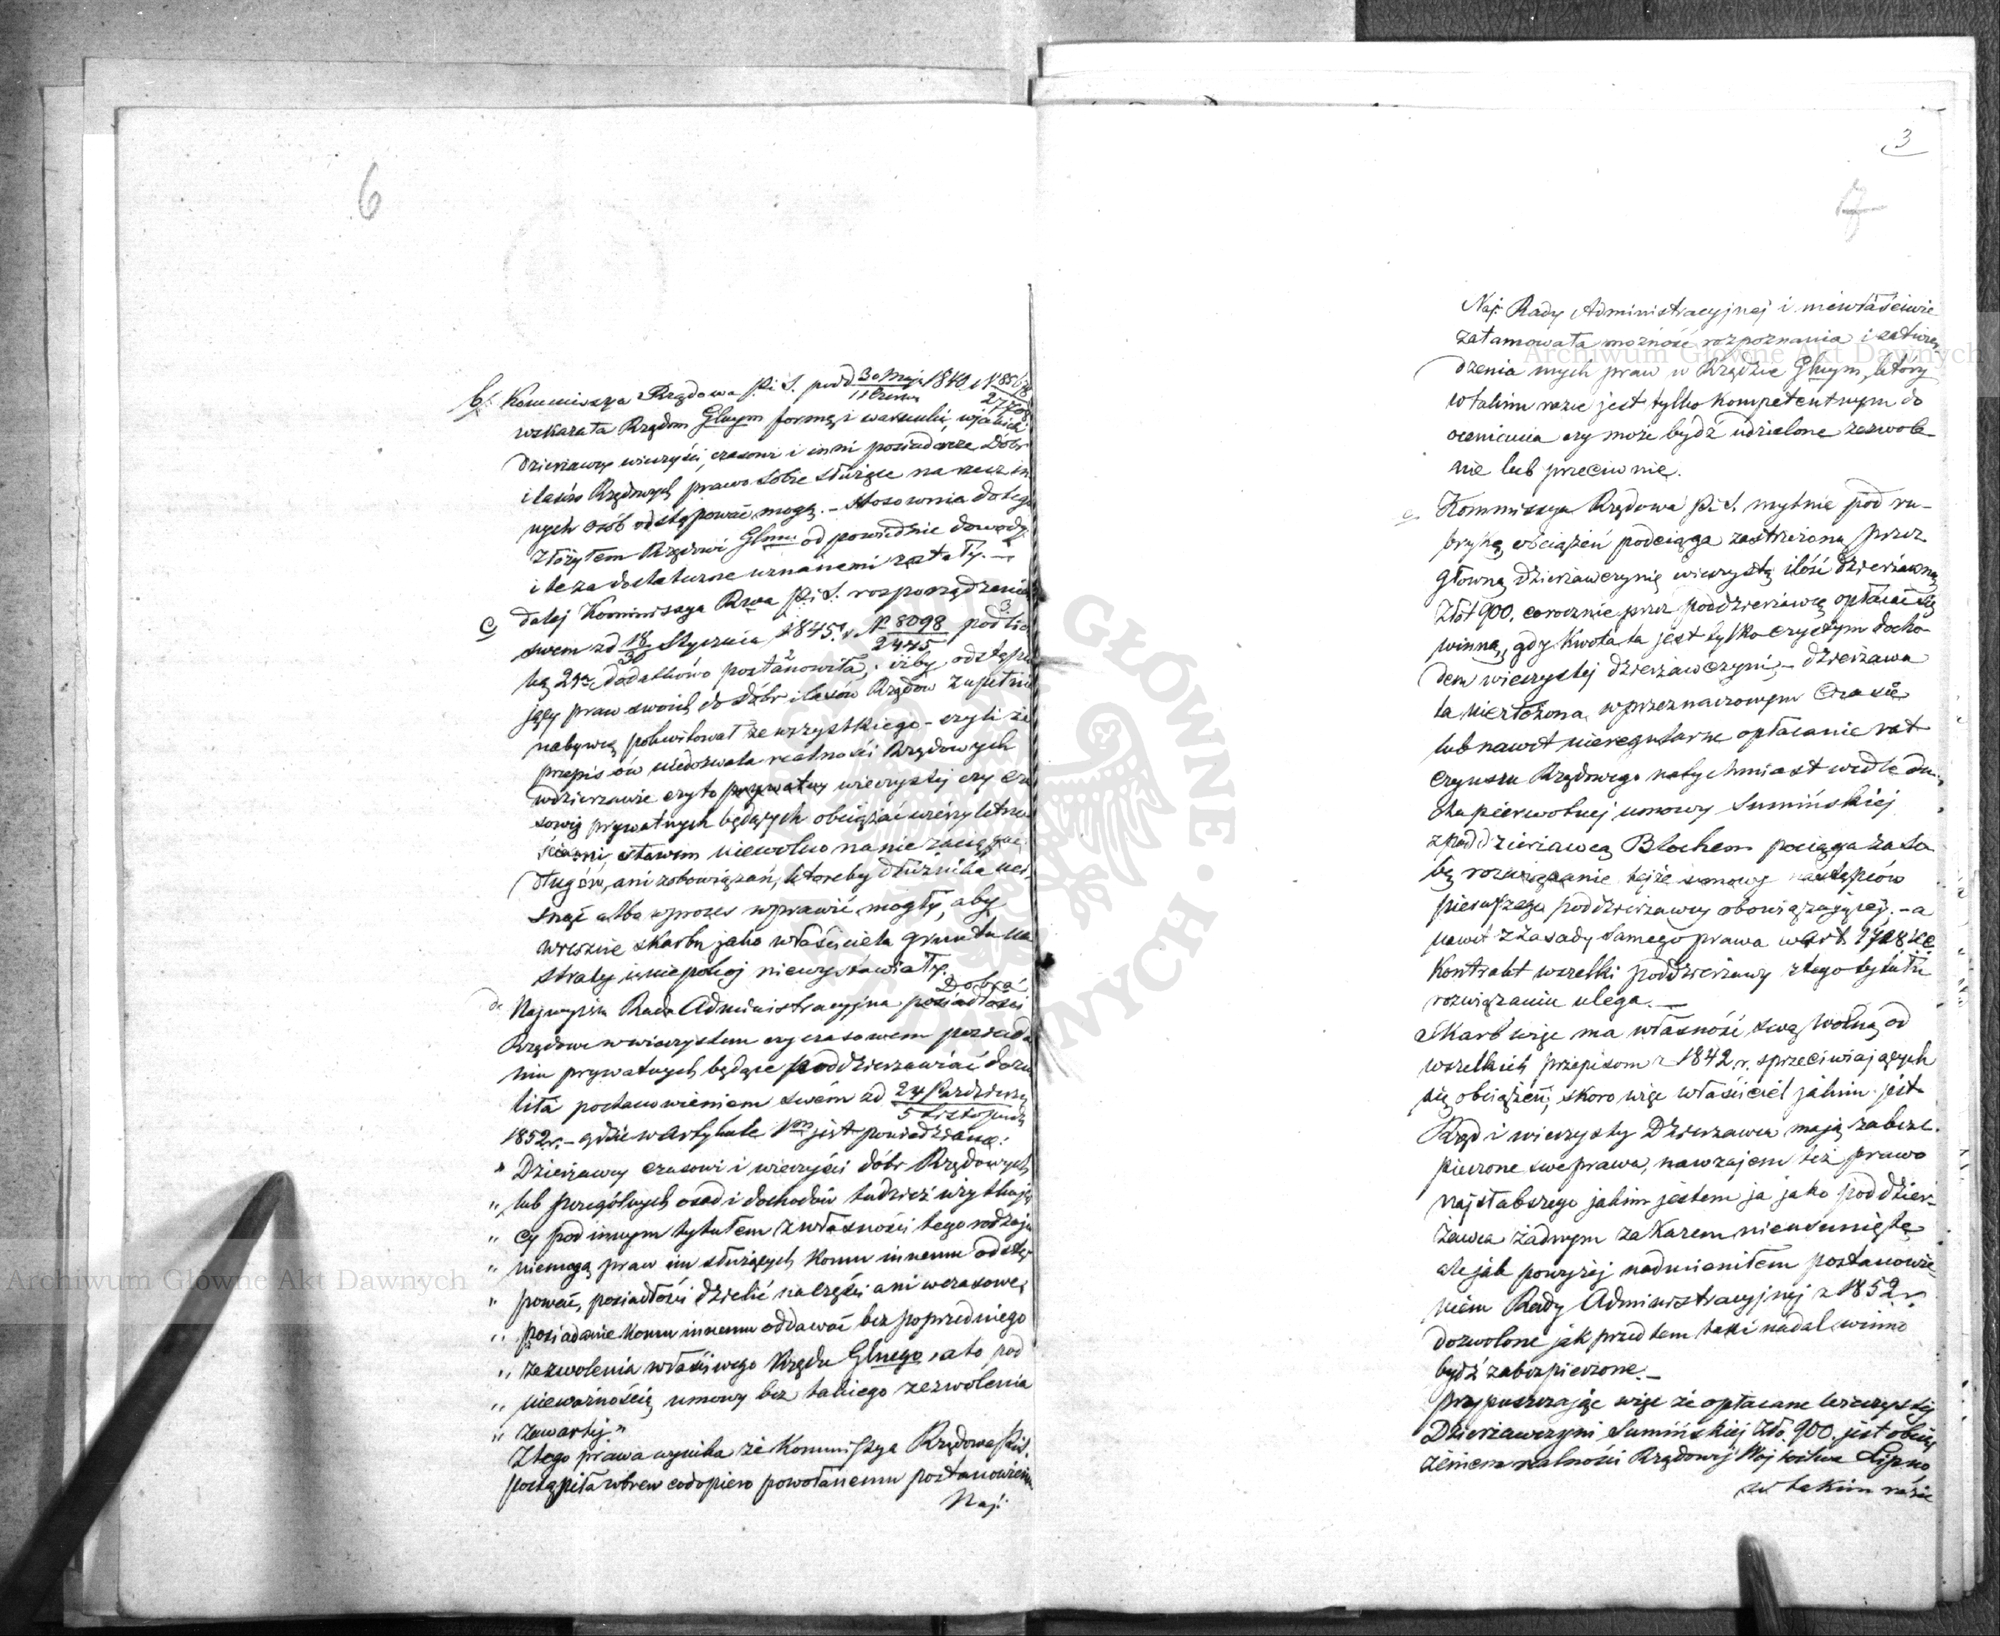 6
b. Kommissya Rządowa P. i S. pod 30 Maja 1840 r. N. 88678
11 Czerwca 27708
wskazała Rządom Glnym formę i warunki, w jakich
dzierżawcy wieczyści, czasowi i inni posiadacze Dóbr
i lasów Rządowych prawo sobie służące na rzecz in
nych osób odstępować mogą. – Stosownie do tego
złożyłem Rządowi Glnmu odpowiednie dowody
i te za dostateczne uznanemi zostały. –
c. dalej Kommissya Rwa P. i S. rozporządzenie
swem zd 18/30 Stycznia 1845 r. N. 8098/2475 pod lit
ką 2gą dodatkowo postanowiła, iżby odstępu
jący praw swoich do dóbr i lasów Rządow zupełnie
nabywcę pokwitował ze wszystkiego – czyli że
przepisów niedozwala realności Rządowych
w dzierżawie czy to prywatney wieczystej czy cza
sowej prywatnych będących obciążać wierzytelno
ściami, słowem niewolno na nie zaciągać
długów, ani zobowiązań, któreby dłużnika uci,
snąć albo w proces wprawić mogły, aby
wreszcie skarbu jako właściciela gruntu na
straty i niepokoj niewystawiały.
Dobra
d. Najwyższa Rada Administracyjna posiadłości
Rządowe w wieczystem czy czasowem posiada
niu prywatnych będące poddzierżawiać dozwo
liła postanowieniem swém zd 24 Października
5 Listopada
1852 r. – gdzie w Artykule 1m jest powiedziane:
" Dzierżawcy czasowi i wieczyści dóbr Rządowych
" lub szczególnych osad i dochodów tudzież użytkują
" cy pod innym tytułem z własności tego rodzaju
" niemogą praw im służących komu innemu odstę
" pować, posiadłości dzielić na części ani w czasowe
" posiadanie komu innemu oddawać bez poprzedniego
" zezwolenia właściwego Rządu Glnego, a to pod
" nieważnością umowy bez takiego zezwolenia
" zawartej."
Z tego prawa wynika że Kommissya Rządowa P. i S.
postąpiła wbrew codopiero powołanemu postanowieniu
Naj:
3
7
Naj: Rady Administracyjnej i niewłaściwie
zatamowała możność rozpoznania i zatwier
dzenia mych praw w Rządzie Glnym, który
w takim razie jest tylko kompetentnym do
ocenienia czy może bydź udzielone zezwole
nie lub przeciwnie.
e. Kommissya Rządowa P. i S. mylnie pod ru-
brykę obciążeń podciąga zastrzeżoną przez
główną dzierżawczynię wieczystą ilość dzierżawną
Złot 900. corocznie przez poddzierżawcę opłacać się
winną, gdy kwota ta jest tylko czystym docho-
dem wieczystej dzierżawczyni, – dzierżawa
ta niezłożona w przeznaczonym czasie
lub nawet nieregularne opłacanie rat
czynszu Rządowego natychmiast wedle du-
cha pierwotnej umowy Sumińskiej
z poddzierżawcą Blochem pociąga za so
bą rozwiązanie tejże umowy następców
pierwszego poddzierżawcy obowiązującej. – a
nawet z zasady samego prawa w Art. 1728 KC
Kontrakt wszelki poddzierżawy z tego tytułu
rozwiązaniu ulega. –
Skarb więc ma własność swą wolną od
wszelkich przepisom z 1842. r. sprzeciwiających
się obciążeń; skoro więc właściciel jakim jest
Rząd i wieczysty Dzierżawca mają zabez
pieczone swe prawa, nawzajem też prawo
najsłabszego jakim jestem ja jako poddzier-
żawca żadnym zakazem nieusunięte
ale jak powyżej nadmieniłem postanowie-
niem Rady Administracyjnej z 1852 r.
dozwolone jak przedtem tak i nadal winno
bydź zabezpieczone. –
przypuszczając więc że opłacane wieczystej
Dzierżawczyni Sumińskiej Złp. 900. jest obcią
żeniem realności Rządowéj Wójtostwa Lipno
w takim razie
Archiwum Główne Akt Dawnych
Archiwum Główne Akt Dawnych